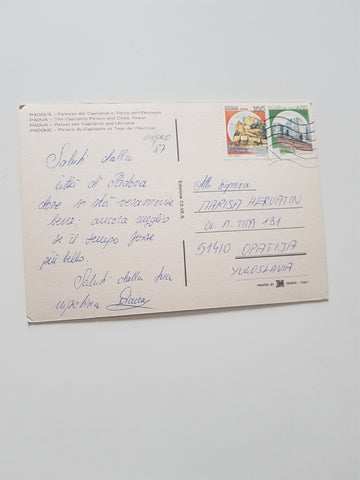 PADOVA - Palazzo del Capitanio e Torre dell'Orologio
PADUA - The Capitanio Palace and Clock Tower
PADUA - Palast des Capitanio und Uhrturm
PADOUE - Palais du Capitanio et Tour de l'Horloge
GIUGNO
87
Saluti dalla
città di Padova
dove si sta veramente
bene; ancora meglio
se il tempo fosse
più bello.
Saluti dalla tua
nipotina
Edizione
Alla signora
MARISA HERVATIN
UL. M. TITA 131
51410 OPATIJA
YUGOSLAVIA
PRINTED BY
TRIESTE - ITALY
100